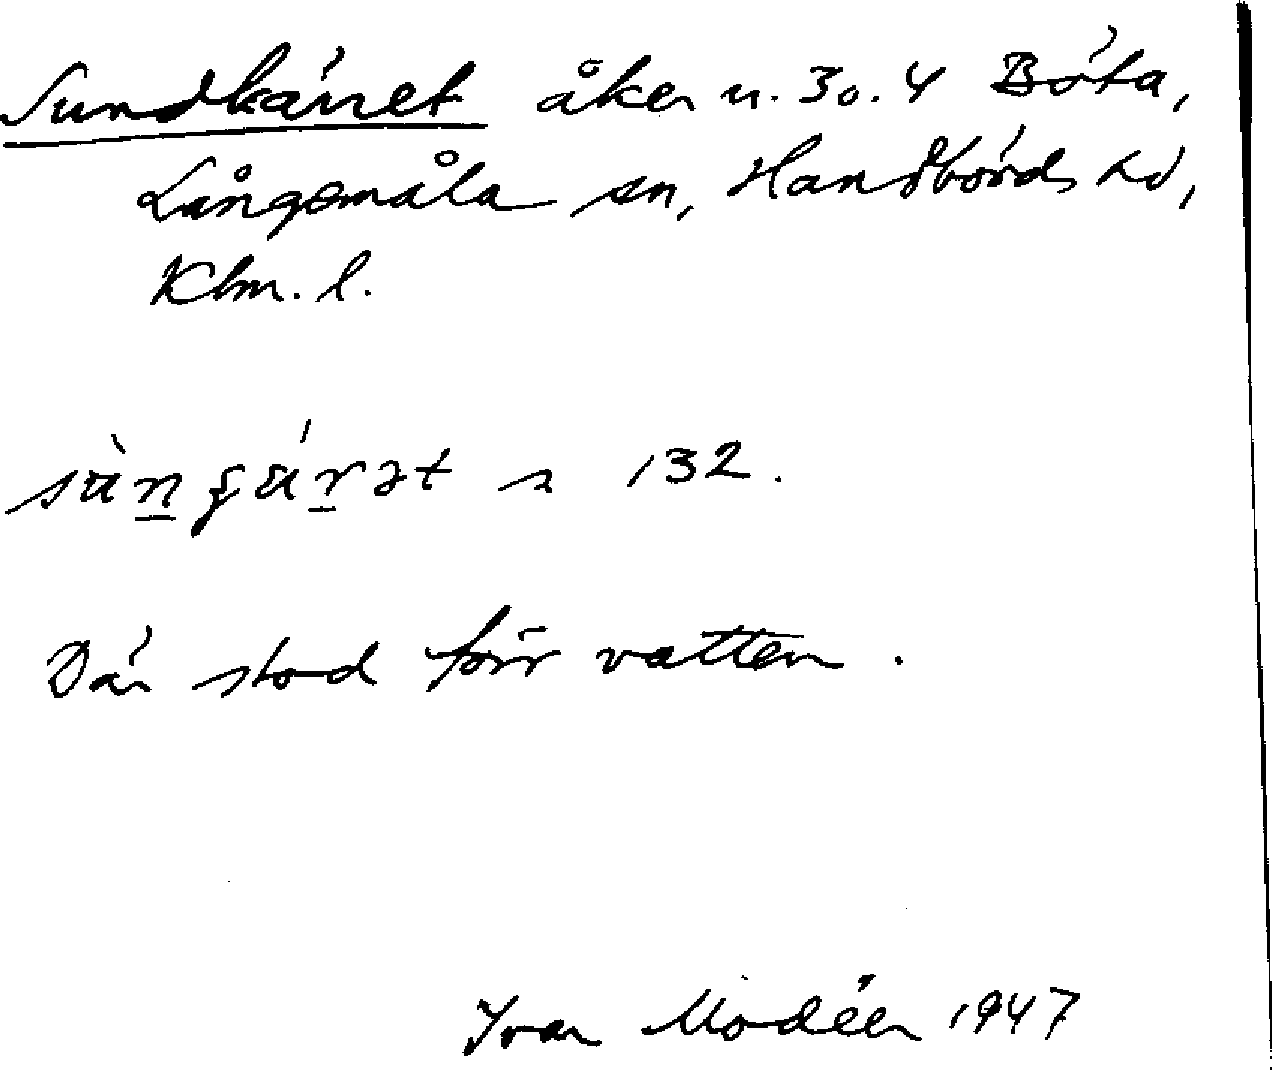 Sundkärret åker n. 3 o. 4 Böta,
Långemåla sn, Handbörds hd,
Klm. l.
132.
Där stod förr vatten.
Ivar Modéer 1947